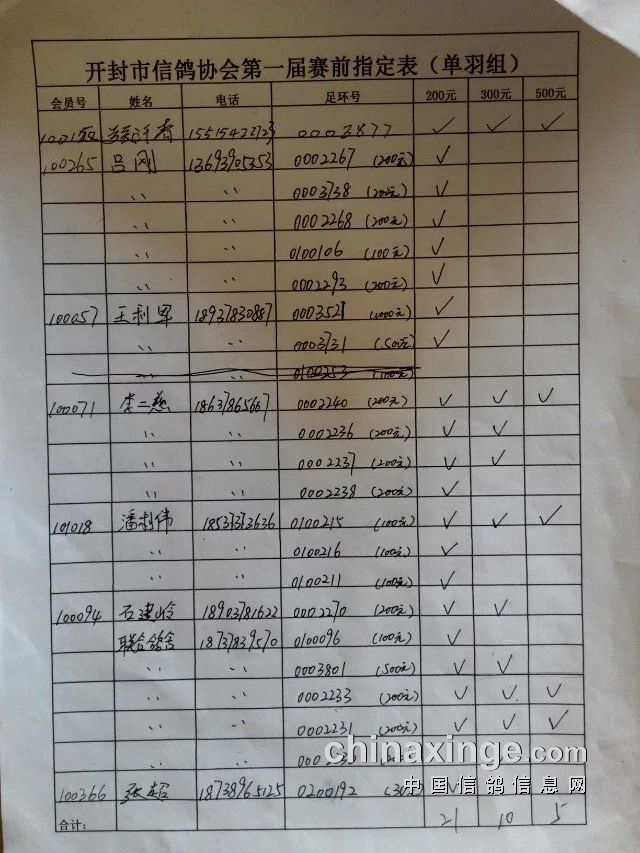 开封市信鸽协会第一届赛前指定表（单羽组）
会员号 姓名 电话 足环号 200元 300元 500元
0003877 ✓ ✓ ✓
100265 吕刚 13693905353 0002267 (200元) ✓
〃 〃 0003738 (200元) ✓
〃 〃 0002268 (200元) ✓
〃 〃 0100106 (100元) ✓
〃 〃 0002293 (200元) ✓
100057 王利军 18937830887 000352 (1000元) ✓
〃 〃 0003731 (500元) ✓
〃 〃 0100253 (100元)
100071 李二 18637865667 0002240 (200元) ✓ ✓ ✓
〃 〃 0002236 (200元) ✓ ✓
〃 〃 0002237 (200元) ✓ ✓
〃 〃 0002238 (200元) ✓
101018 潘利伟 18537313636 0100215 (100元) ✓ ✓ ✓
〃 〃 0100216 (100元) ✓
〃 〃 0100211 (100元) ✓
100094 石建岭 18903781622 0002270 (200元) ✓ ✓
联合鸽舍 18737839570 0100096 (100元) ✓
〃 〃 0003801 (500元) ✓ ✓
〃 〃 0002233 (200元) ✓ ✓ ✓
〃 〃 0002231 (200元) ✓ ✓ ✓
chinaxinge.com
中国信鸽信息网
100366 张超 18738965125 0200192
合计: 21 10 5